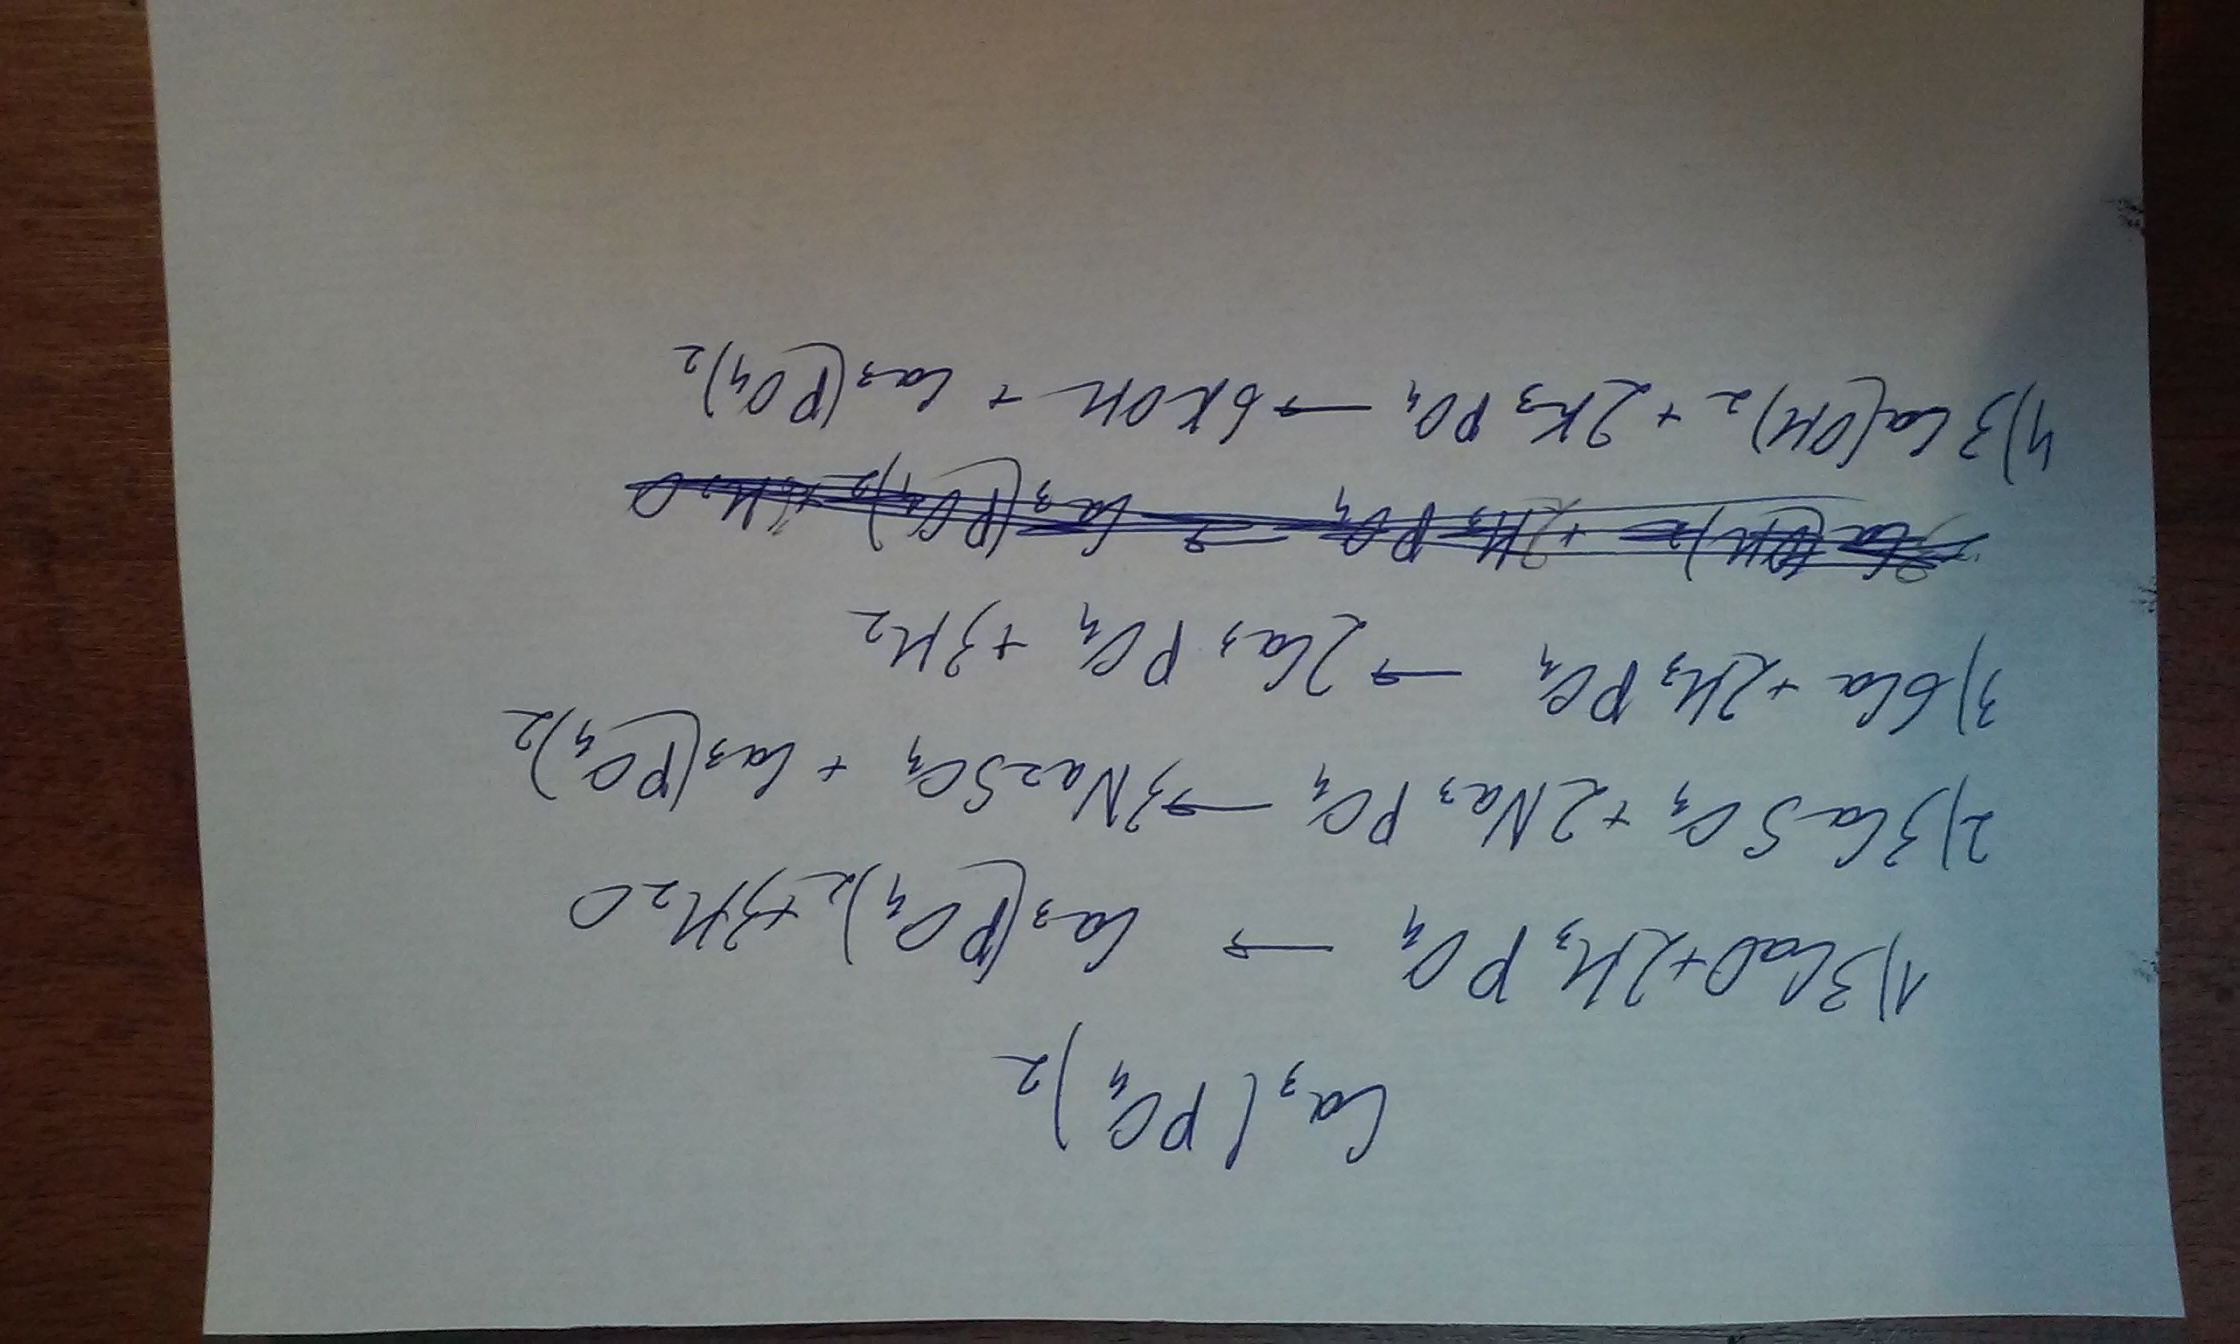 Ca₃(PO₄)₂
1) 3CaO + 2H₃PO₄ → Ca₃(PO₄)₂ + 3H₂O
2) 3CaSO₄ + 2Na₃PO₄ → 3Na₂SO₄ + Ca₃(PO₄)₂
3) 6Ca + 2H₃PO₄ → 2Ca₃PO₄ + 3H₂
3Ca(OH)₂ + 2H₃PO₄ → Ca₃(PO₄)₂ + 6H₂O
4) 3Ca(OH)₂ + 2K₃PO₄ → 6KOH + Ca₃(PO₄)₂